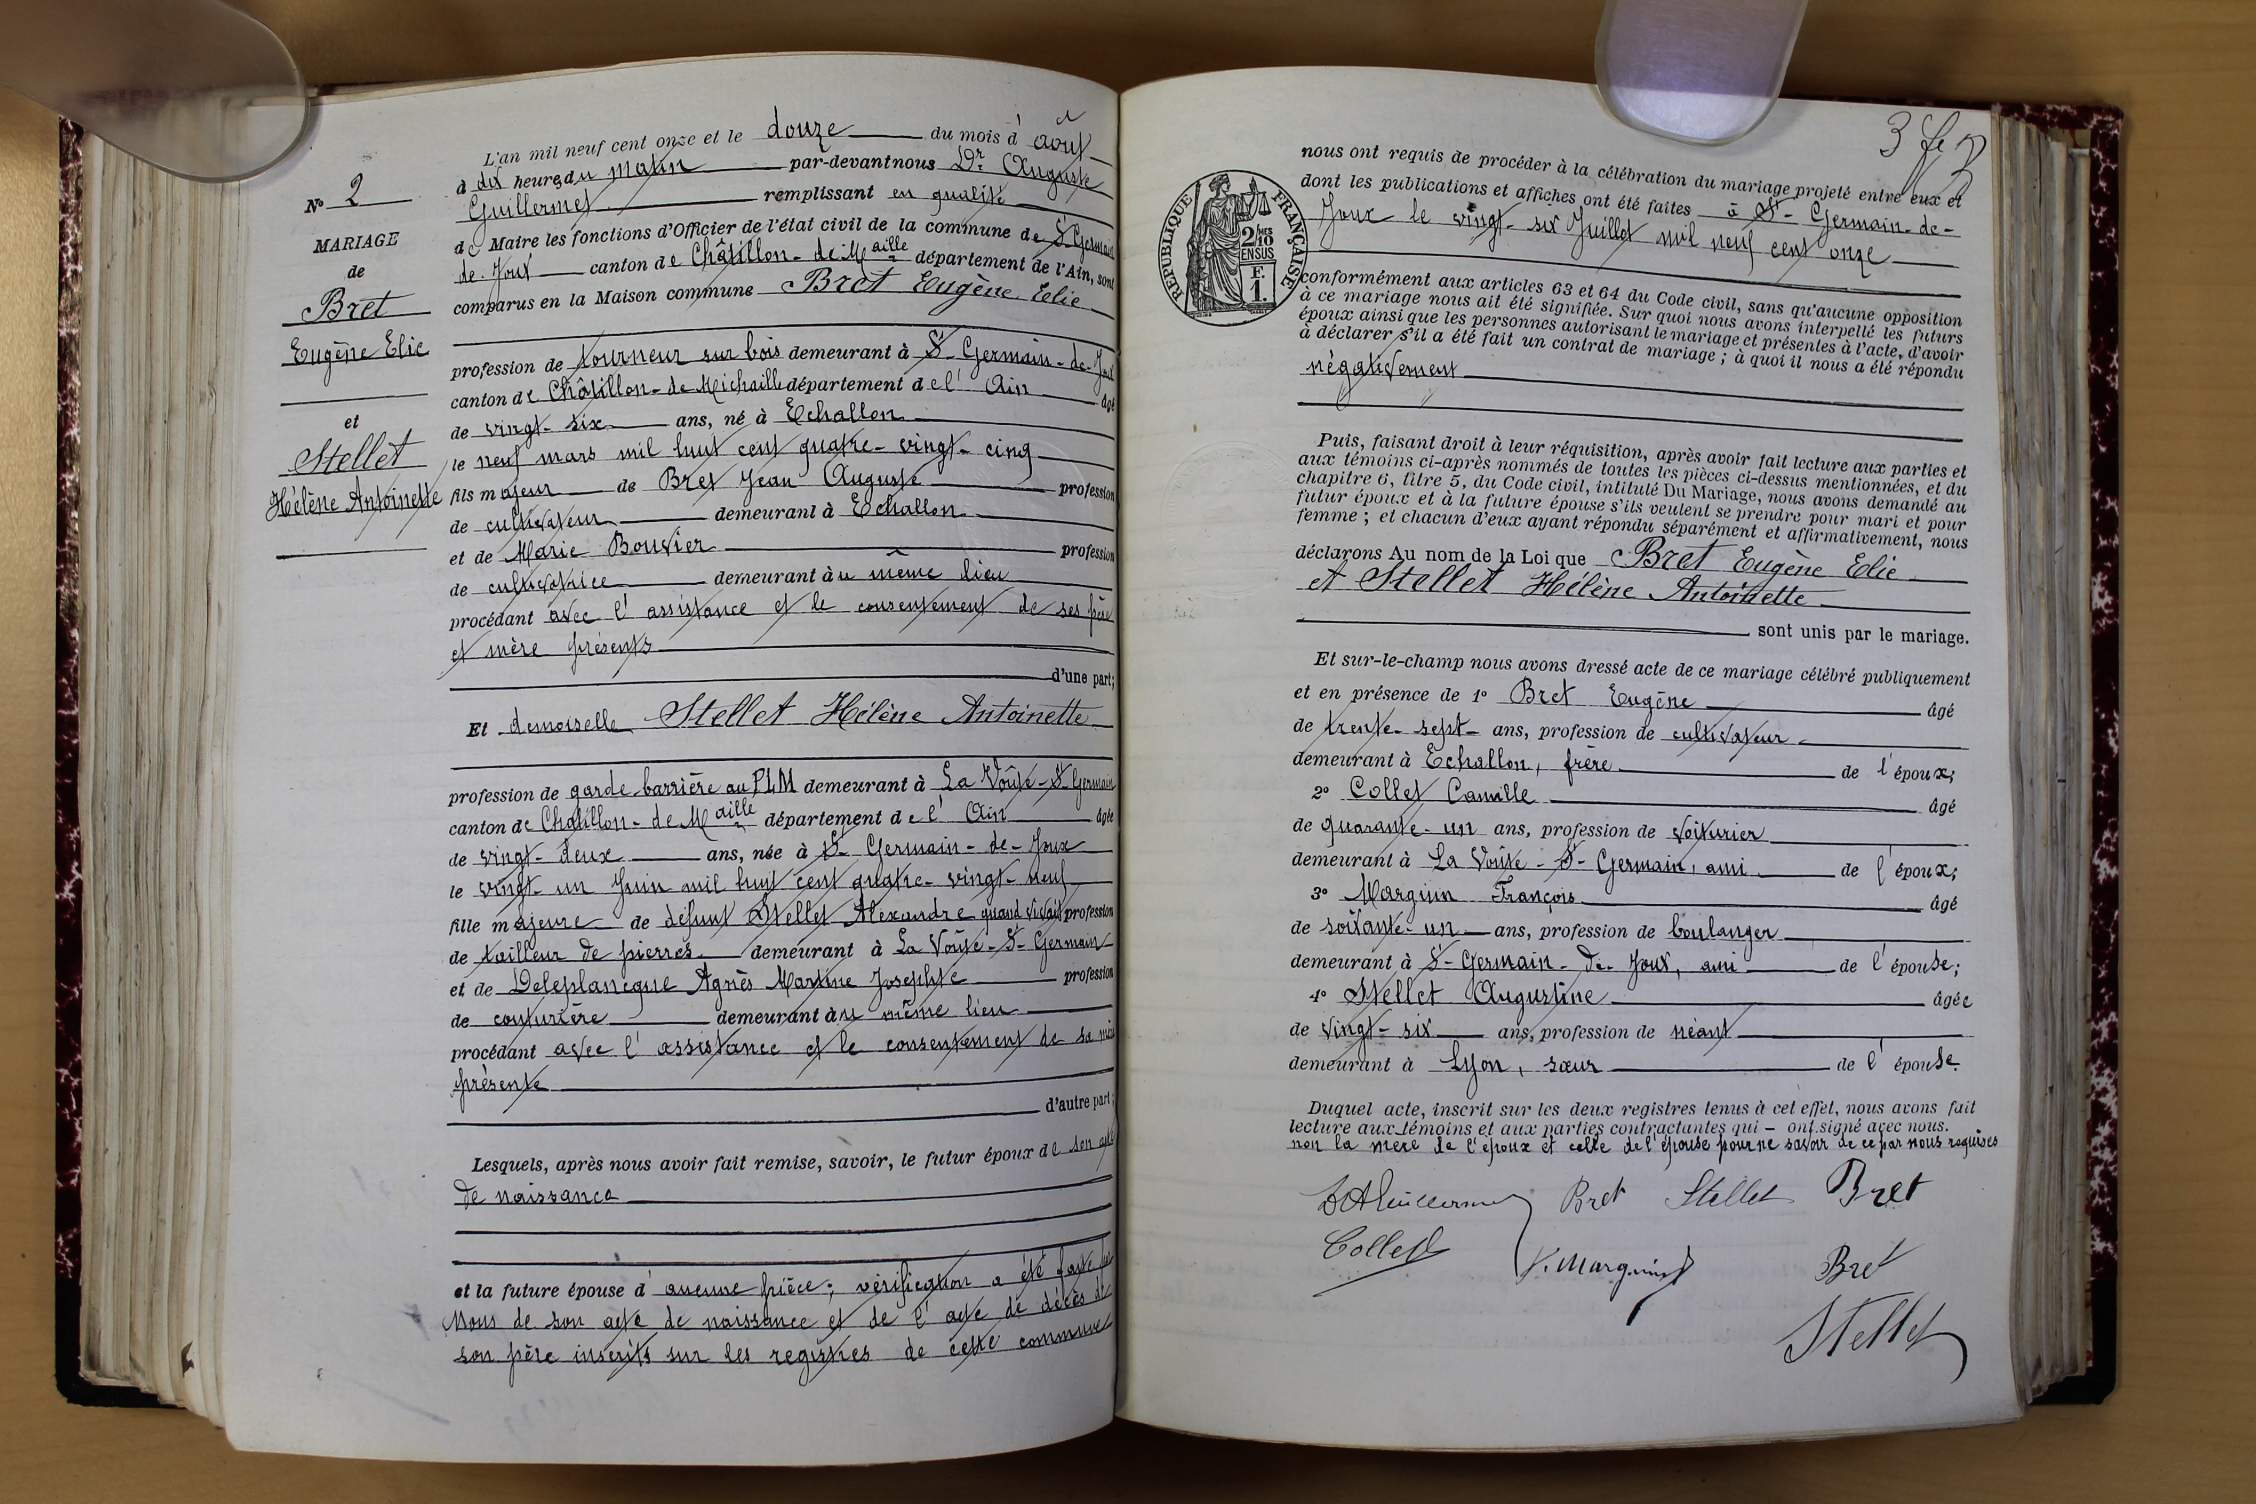 N° 2
MARIAGE
de
Bret
Eugène Elie
et
Stellet
Hélène Antoinette
L'an mil neuf cent onze et le douze du mois d'août
à dix heures du matin par-devant nous Dr Auguste
Guillermet remplissant en qualité
de Maire les fonctions d'Officier de l'état civil de la commune de St Germain
de-Joux canton de Châtillon-de-Maille département de l'Ain, sont
comparus en la Maison commune Bret Eugène Elie
profession de tourneur sur bois demeurant à St-Germain-de-Joux
canton de Châtillon-de-Michaille département de l'Ain âgé
de vingt-six ans, né à Echallon
le neuf mars mil huit cent quatre-vingt-cinq
fils majeur de Bret Jean Auguste profession
de cultivateur demeurant à Echallon
et de Marie Bouvier profession
de cultivatrice demeurant au même lieu
procédant avec l'assistance et le consentement de ses père
et mère présents
d'une part;
Et demoiselle Stellet Hélène Antoinette
profession de garde-barrière au PLM demeurant à La Voûte-St-Germain
canton de Châtillon-de-Maille département de l'Ain âgée
de vingt-deux ans, née à St-Germain-de-Joux
le vingt-un Juin mil huit cent quatre-vingt-neuf
fille majeure de défunt Stellet Alexandre quand vivait profession
de tailleur de pierres demeurant à La Voûte-St-Germain
et de Deleplancque Agnès Martine Josephte profession
de couturière demeurant au même lieu
procédant avec l'assistance et le consentement de sa mère
présente
d'autre part;
Lesquels, après nous avoir fait remise, savoir, le futur époux de son acte
de naissance
et la future épouse d'aucune pièce; vérification a été faite par
Nous de son acte de naissance et de l'acte de décès de
son père inscrits sur les registres de cette commune
3 fe
RÉPUBLIQUE FRANÇAISE
2/10 MES
EN SUS
F.
1.
nous ont requis de procéder à la célébration du mariage projeté entre eux et
dont les publications et affiches ont été faites à St-Germain-de-
Joux le vingt-six Juillet mil neuf cent onze
conformément aux articles 63 et 64 du Code civil, sans qu'aucune opposition
à ce mariage nous ait été signifiée. Sur quoi nous avons interpellé les futurs
époux ainsi que les personnes autorisant le mariage et présentes à l'acte, d'avoir
à déclarer s'il a été fait un contrat de mariage; à quoi il nous a été répondu
négativement
Puis, faisant droit à leur réquisition, après avoir fait lecture aux parties et
aux témoins ci-après nommés de toutes les pièces ci-dessus mentionnées, et du
chapitre 6, titre 5, du Code civil, intitulé Du Mariage, nous avons demandé au
futur époux et à la future épouse s'ils veulent se prendre pour mari et pour
femme; et chacun d'eux ayant répondu séparément et affirmativement, nous
déclarons Au nom de la Loi que Bret Eugène Elie
et Stellet Hélène Antoinette
sont unis par le mariage.
Et sur-le-champ nous avons dressé acte de ce mariage célébré publiquement
et en présence de 1° Bret Eugène âgé
de trente-sept ans, profession de cultivateur
demeurant à Echallon, frère de l'époux;
2° Collet Camille âgé
de quarante-un ans, profession de voiturier
demeurant à La Voûte-St-Germain, ami de l'époux;
3° Marguin François âgé
de soixante-un ans, profession de boulanger
demeurant à St-Germain-de-Joux, ami de l'épouse;
4° Stellet Augustine âgée
de vingt-six ans, profession de néant
demeurant à Lyon, sœur de l'épouse.
Duquel acte, inscrit sur les deux registres tenus à cet effet, nous avons fait
lecture aux témoins et aux parties contractantes qui – ont signé avec nous.
non la mère de l'époux et celle de l'épouse pour ne savoir de ce par nous requises
DAGuillermet Bret Stellet Bret
Collet F. Marguin Bret
Stellet